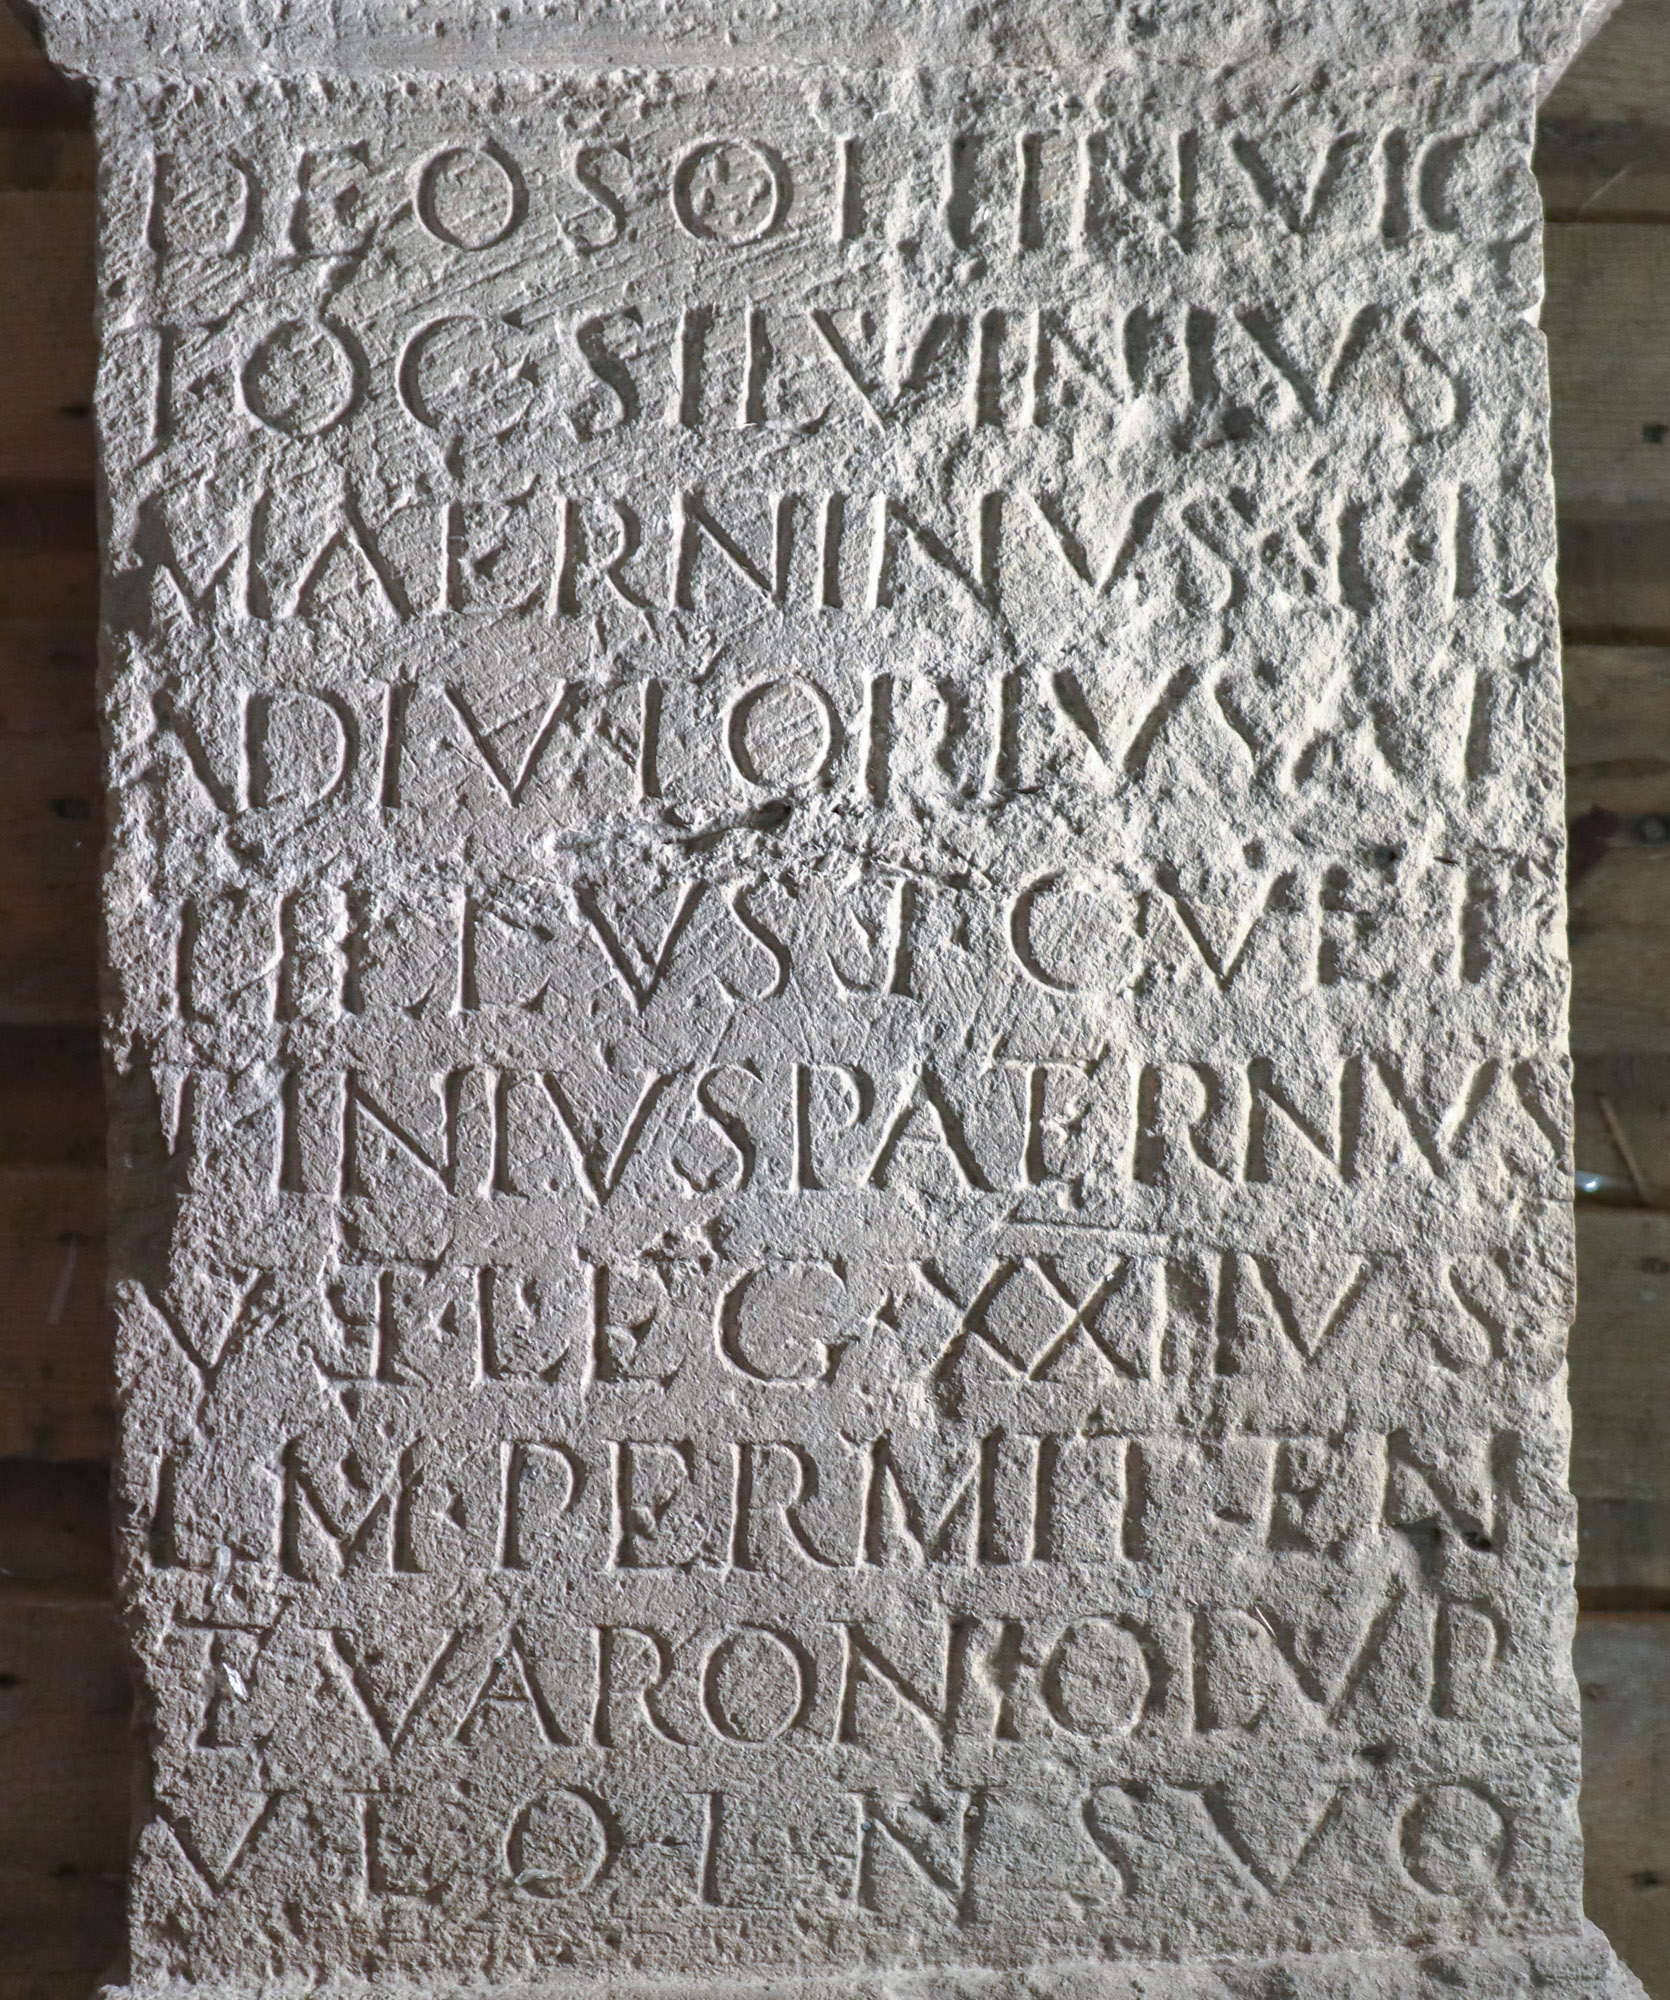 DEO SOLI INVIC
TO C SILVINIVS
MATERNINVS ET
ADIVTORIVS
C VET
TINIVS PATERNVS
V F·LEG·XXII V S
L M·PERMIT·EN
TE VARONIO LVP
VLO IN SVO